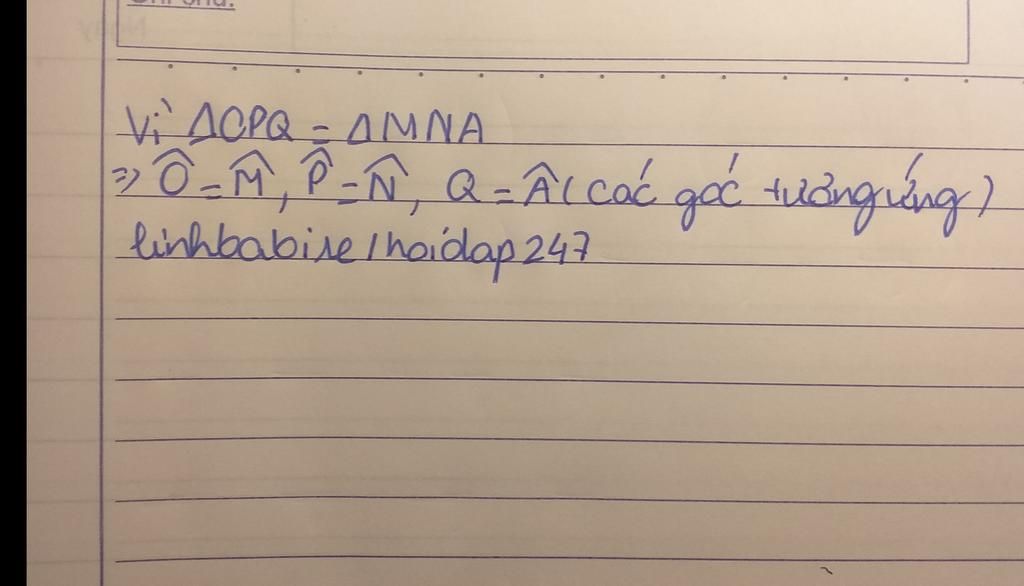 Vì ΔOPQ = ΔMNA
=> Ô = M̂, P̂ = N̂, Q = Â (các góc tương ứng)
linhbabise/hoidap247